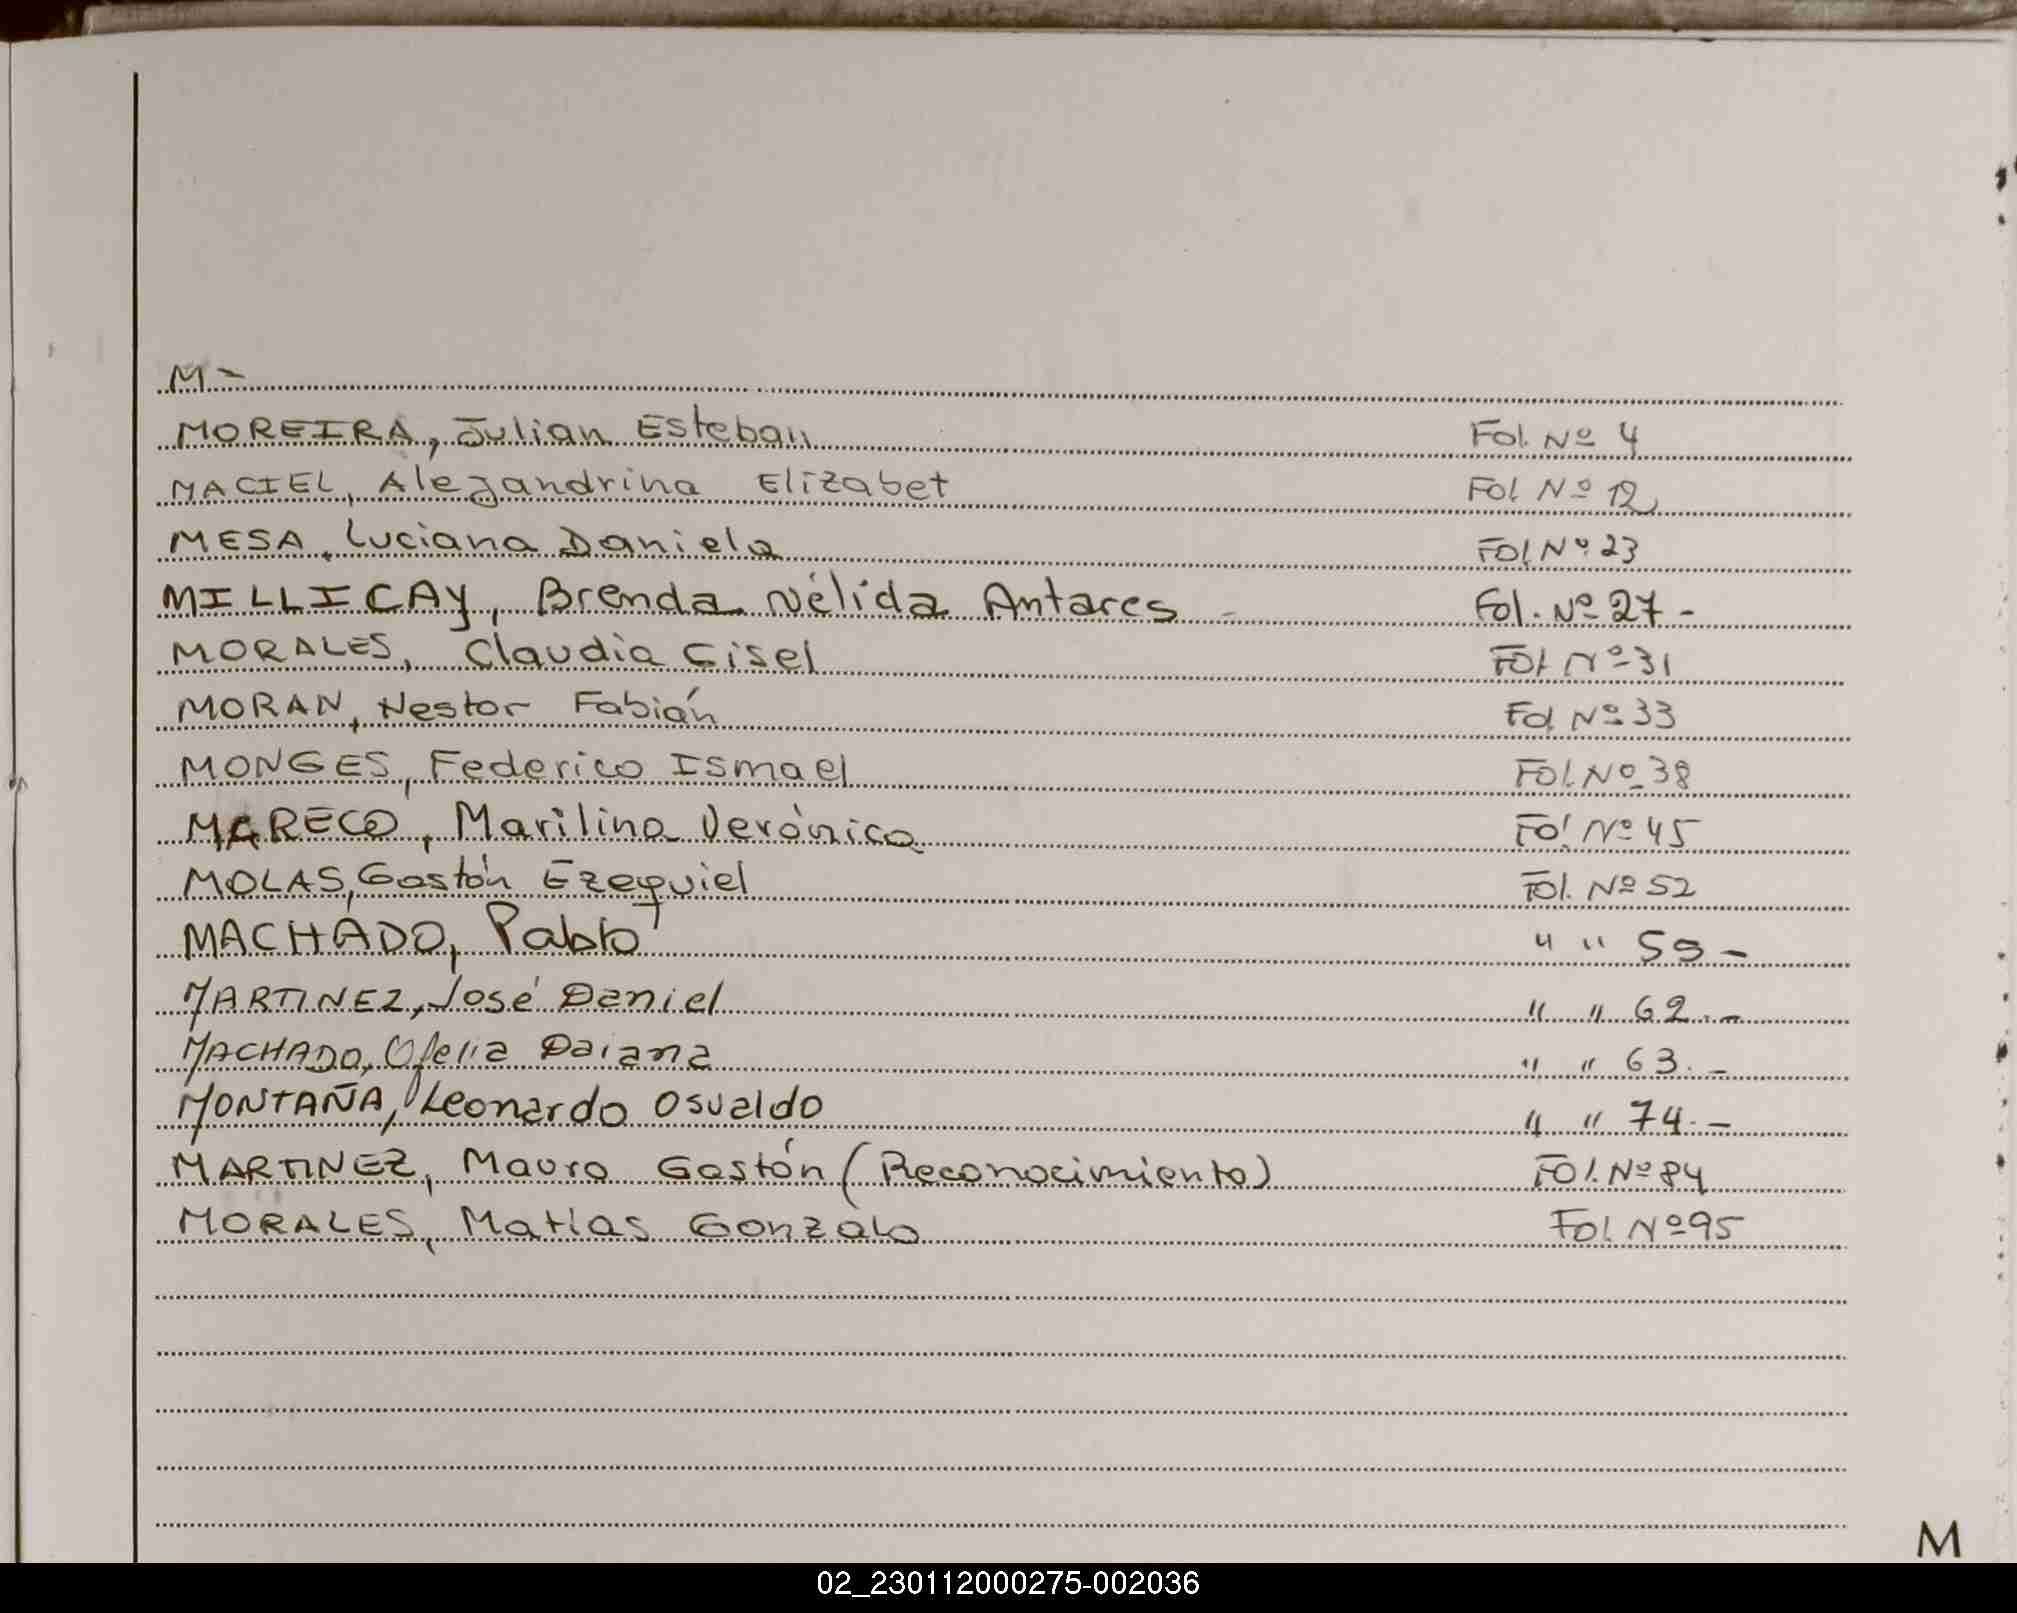 M-
MOREIRA, Julian Esteban Fol. Nº 4
MACIEL, Alejandrina Elizabet Fol. Nº 12
MESA, Luciana Daniela Fol. Nº 23
MILLICAY, Brenda Nélida Antares - Fol. Nº 27 -
MORALES, Claudia Gisel Fol. Nº 31
MORAN, Nestor Fabián Fol. Nº 33
MONGES, Federico Ismael Fol. Nº 38
MARECO, Marilina Verónica Fol. Nº 45
MOLAS, Gastón Ezequiel Fol. Nº 52
MACHADO, Pablo " " 59 -
MARTINEZ, José Daniel " " 62.-
MACHADO, Ofelia Daiana " " 63.-
MONTAÑA, Leonardo Osvaldo " " 74.-
MARTINEZ, Mauro Gastón (Reconocimiento) Fol. Nº 84
MORALES, Matías Gonzalo Fol. Nº 95
M
02_230112000275-002036